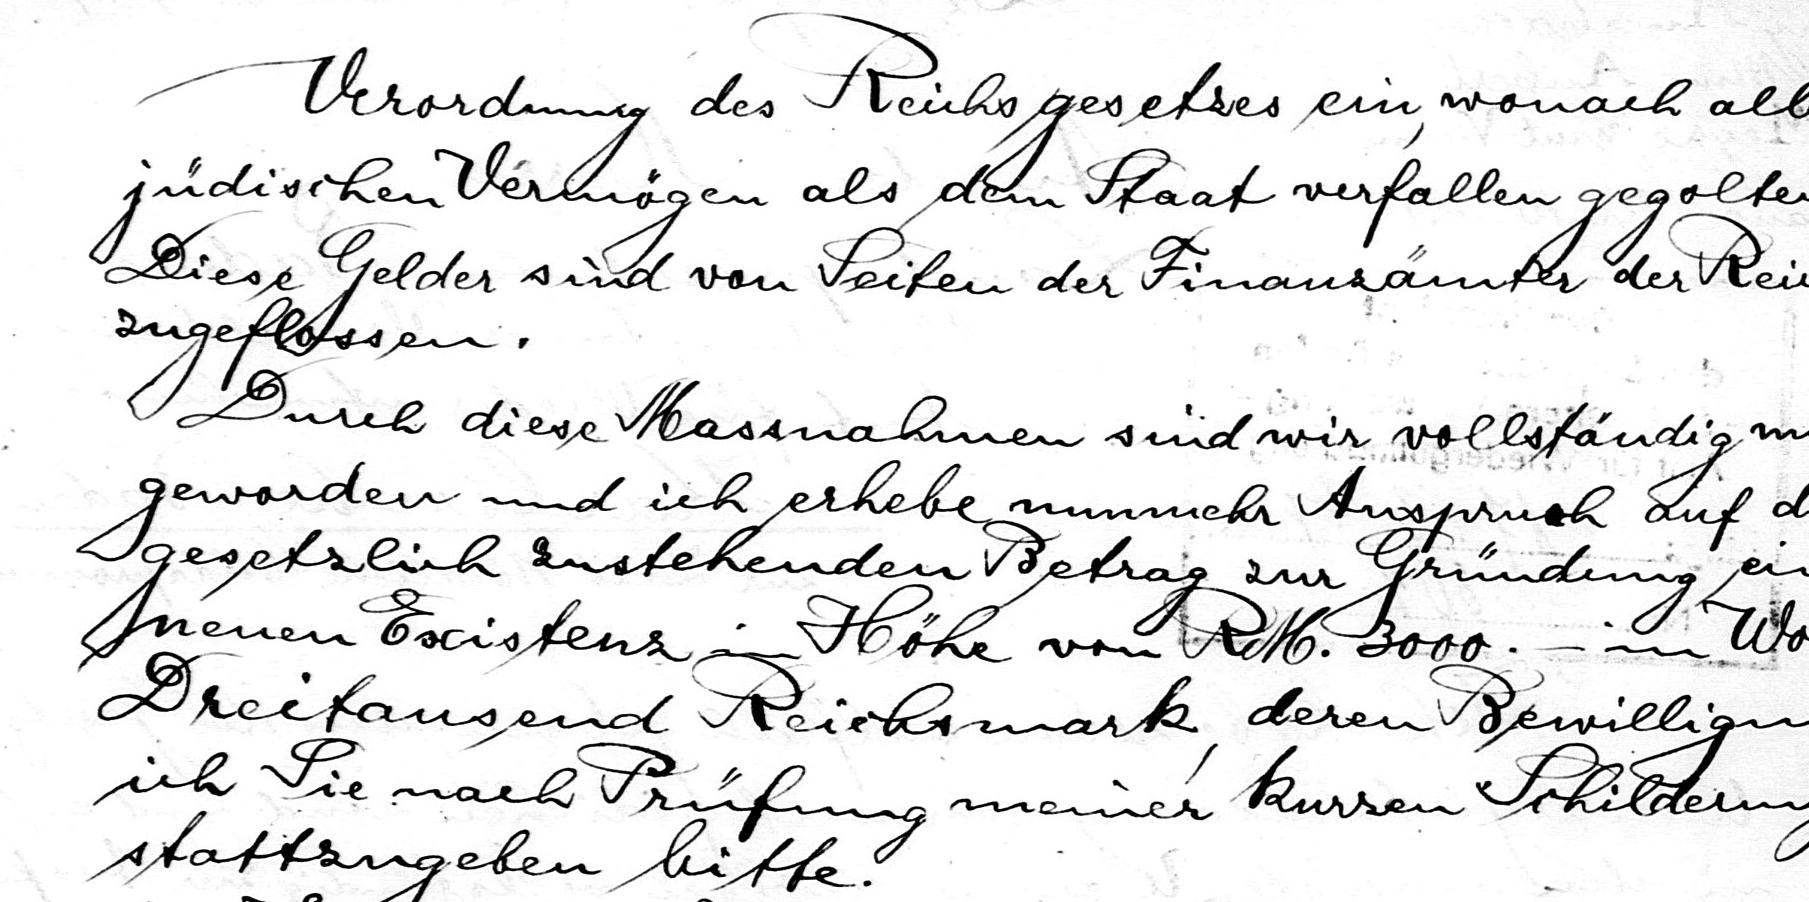 Verordnung des Reichsgesetzes ein, wonach all
jüdischen Vermögen als dem Staat verfallen gegolten
Diese Gelder sind von Seiten der Finanzämter der Rei
zugeflossen.
Durch diese Massnahmen sind wir vollständig m
geworden und ich erhebe nunmehr Anspruch auf d
gesetzlich zustehenden Betrag zur Gründung ein
neuen Existenz in Höhe von RM. 3000.— in Wo
Dreitausend Reichsmark, deren Bewilligun
ich Sie nach Prüfung meiner kurzen Schilderung
stattzugeben bitte.